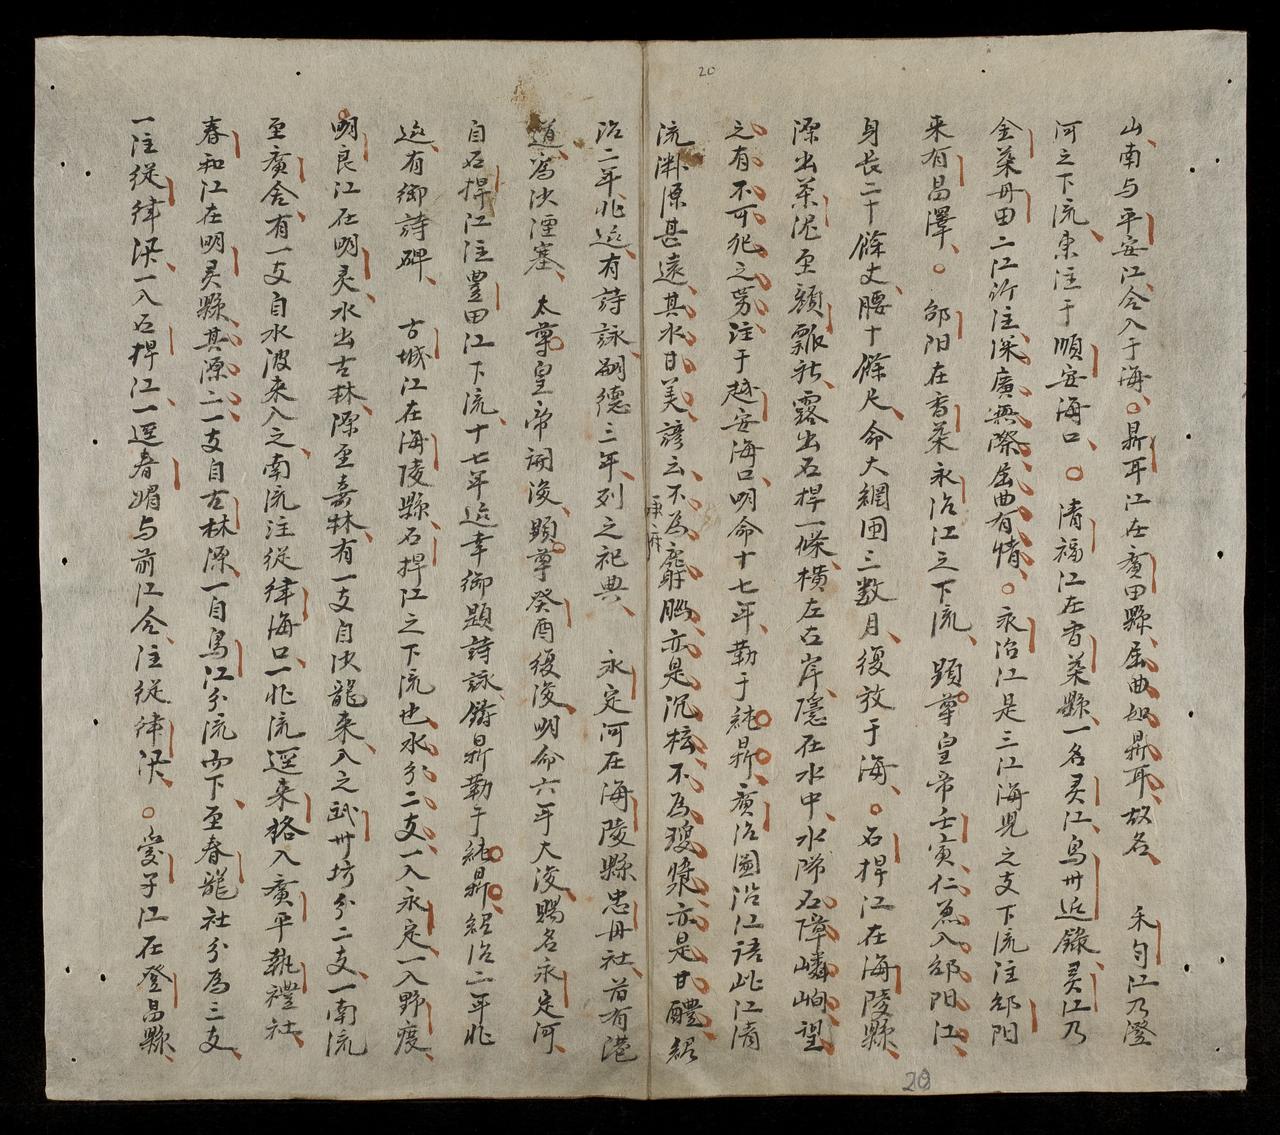 20
山南与平安江合入于海鼎耳江在廣田縣屈曲如鼎耳故名 禾匀江乃澄
河之下流東注于順安海口 清福江在香茶縣一名灵江烏州近錄灵江乃
金茶丹田二江所注深廣無際屈曲有情 永治江是三江海児之支下流注邰阳
来有昌澤 邰阳在香茶永治江之下流 顕尊皇帝壬寅仁蒐入邰阳江
身長二十餘丈腰十餘尺命大網围三数月復放于海 石捍江在海陵縣
源出茶泥至額瓢社露出石捍一條横左右岸隱在水中水际石障嶙峋望
之有不可犯之势注于越安海口明命十七年勒于純鼎廣治圖沿江语此江清
流渊源甚遠其水甘美諺云不為麝腦亦是沉枟不為瓊漿亦是甘醴紹
治二年北巡有詩詠嗣德三年列之祀典 永定河在海陵縣忠丹社首有港
道為决湮塞 太尊皇帝開浚顕尊癸酉復浚明命六年大浚賜名永定河
自石捍江注豊田江下流十七年巡幸御題詩詠鑄鼎勒于純鼎紹治二年北
巡有御詩碑 古城江在海陵縣石捍江之下流也水分二支一入永定一入野度
明良江在明灵水出古林源至壽林有一支自决龍来入之武州坊分二支一南流
至廣舍有一支自水波来入之南流注従律海口一北流逕来格入廣平執禮社
春和江在明灵縣其源二一支自古林源一自烏江分流而下至春龍社分為三支
一注従律汛一入石捍江一逕春媚与前江合注従律汛 愛子江在登昌縣
20